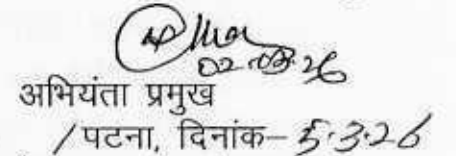 02.03.26
अभियंता प्रमुख
/पटना, दिनांक– 5.3.26